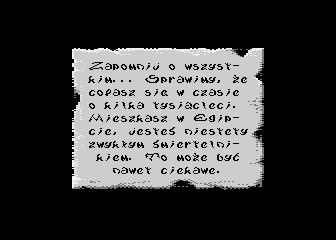 Zapomnij o wszyst-
kim... Sprawimy, że
cofasz się w czasie
o kilka tysiącleci.
Mieszkasz w Egip-
cie, jesteś niestety
zwykłym śmiertelni-
kiem. To może być
nawet ciekawe.